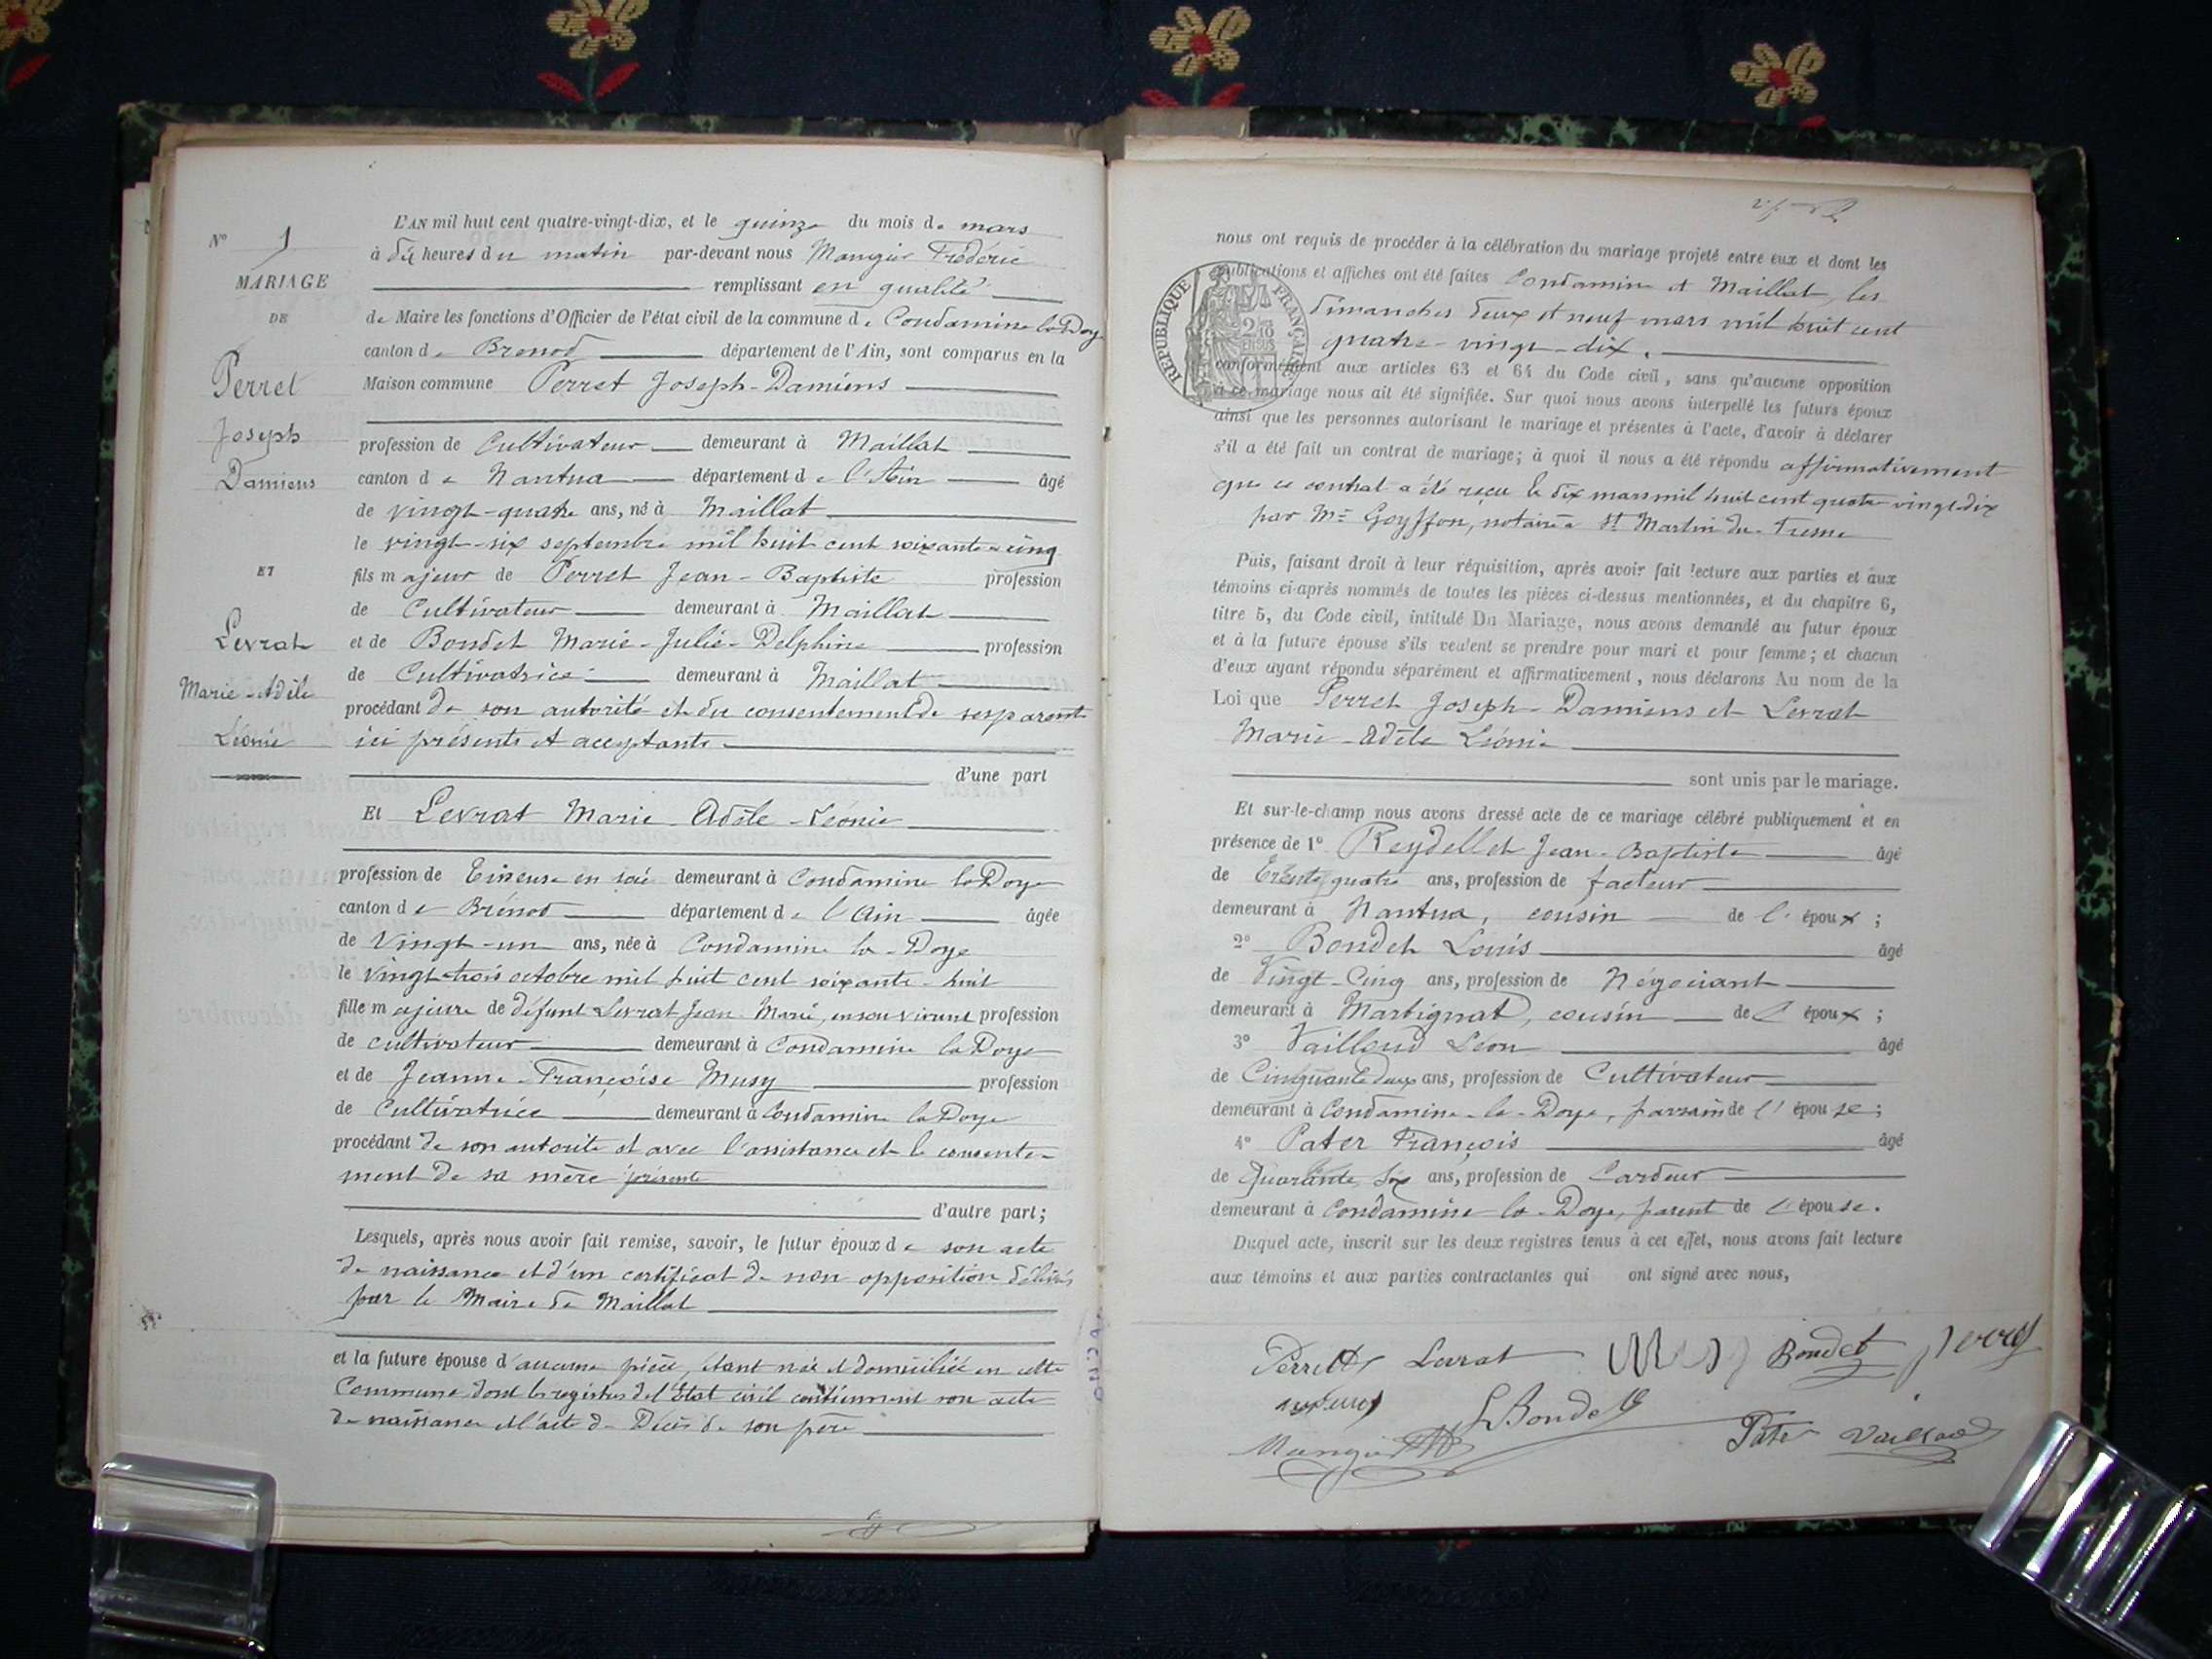 L'AN mil huit cent quatre-vingt-dix, et le quinze du mois de mars
N° 1
à dix heures du matin par-devant nous Mangier Frédéric
MARIAGE
remplissant en qualité
DE
de Maire les fonctions d'Officier de l'état civil de la commune de Condamine la Doye
canton de Brenod département de l'Ain, sont comparus en la
Perret
Maison commune Perret Joseph-Damiens
Joseph
profession de Cultivateur demeurant à Maillat
Damiens
canton de Nantua département de l'Ain âgé
de vingt-quatre ans, né à Maillat
le vingt-six septembre mil huit cent soixante-cinq
ET
fils majeur de Perret Jean-Baptiste profession
de Cultivateur demeurant à Maillat
Levrat
et de Bondet Marie-Julie-Delphine profession
de Cultivatrice demeurant à Maillat
Marie-Adèle
procédant de son autorité et du consentement de ses parents
Léonie
ici présents et acceptants
d'une part
Et Levrat Marie-Adèle-Léonie
profession de en soie demeurant à Condamine la Doye
canton de Brénod département de l'Ain âgée
de Vingt-un ans, née à Condamine la-Doye
le vingt-trois octobre mil huit cent soixante-huit
fille majeure de défunt Levrat Jean-Marie, en son vivant profession
de cultivateur demeurant à Condamine la Doye
et de Jeanne-Françoise Musy profession
de Cultivatrice demeurant à Condamine la Doye
procédant de son autorité et avec l'assistance et le consente-
ment de sa mère présente
d'autre part;
Lesquels, après nous avoir fait remise, savoir, le futur époux de son acte
de naissance et d'un certificat de non opposition délivrés
par le Maire de Maillat
et la future épouse d'aucune pièce, étant née et domiciliée en cette
Commune dont les registres de l'Etat civil contiennent son acte
de naissance et l'acte de Décès de son père
nous ont requis de procéder à la célébration du mariage projeté entre eux et dont les
publications et affiches ont été faites Condamine et Maillat, les
dimanches deux et neuf mars mil huit cent
quatre-vingt-dix.
RÉPUBLIQUE FRANÇAISE
conformément aux articles 63 et 64 du Code civil, sans qu'aucune opposition
à ce mariage nous ait été signifiée. Sur quoi nous avons interpellé les futurs époux
ainsi que les personnes autorisant le mariage et présentes à l'acte, d'avoir à déclarer
s'il a été fait un contrat de mariage; à quoi il nous a été répondu affirmativement
que ce contrat a été reçu le dix mars mil huit cent quatre vingt-dix
par Me Goyffon, notaire à St Martin du-Fresne
Puis, faisant droit à leur réquisition, après avoir fait lecture aux parties et aux
témoins ci-après nommés de toutes les pièces ci-dessus mentionnées, et du chapitre 6,
titre 5, du Code civil, intitulé Du Mariage, nous avons demandé au futur époux
et à la future épouse s'ils veulent se prendre pour mari et pour femme; et chacun
d'eux ayant répondu séparément et affirmativement, nous déclarons Au nom de la
Loi que Perret Joseph-Damiens et Levrat
Marie-Adèle Léonie
sont unis par le mariage.
Et sur-le-champ nous avons dressé acte de ce mariage célébré publiquement et en
présence de 1° Reydellet Jean-Baptiste âgé
de Trente quatre ans, profession de facteur
demeurant à Nantua, cousin de l'époux;
2° Bondet Louis âgé
de Vingt-Cinq ans, profession de Négociant
demeurant à Martignat, cousin de l'époux;
3° Vailloud Léon âgé
de Cinquante deux ans, profession de Cultivateur
demeurant à Condamine-la-Doye, parrain de l'épouse;
4° Pater François âgé
de Quarante Six ans, profession de Cardeur
demeurant à Condamine-la-Doye, parent de l'épouse.
Duquel acte, inscrit sur les deux registres tenus à cet effet, nous avons fait lecture
aux témoins et aux parties contractantes qui ont signé avec nous,
Perret Levrat Musy Bondet Perret
L Bondet
Mangier Pater Vailloud